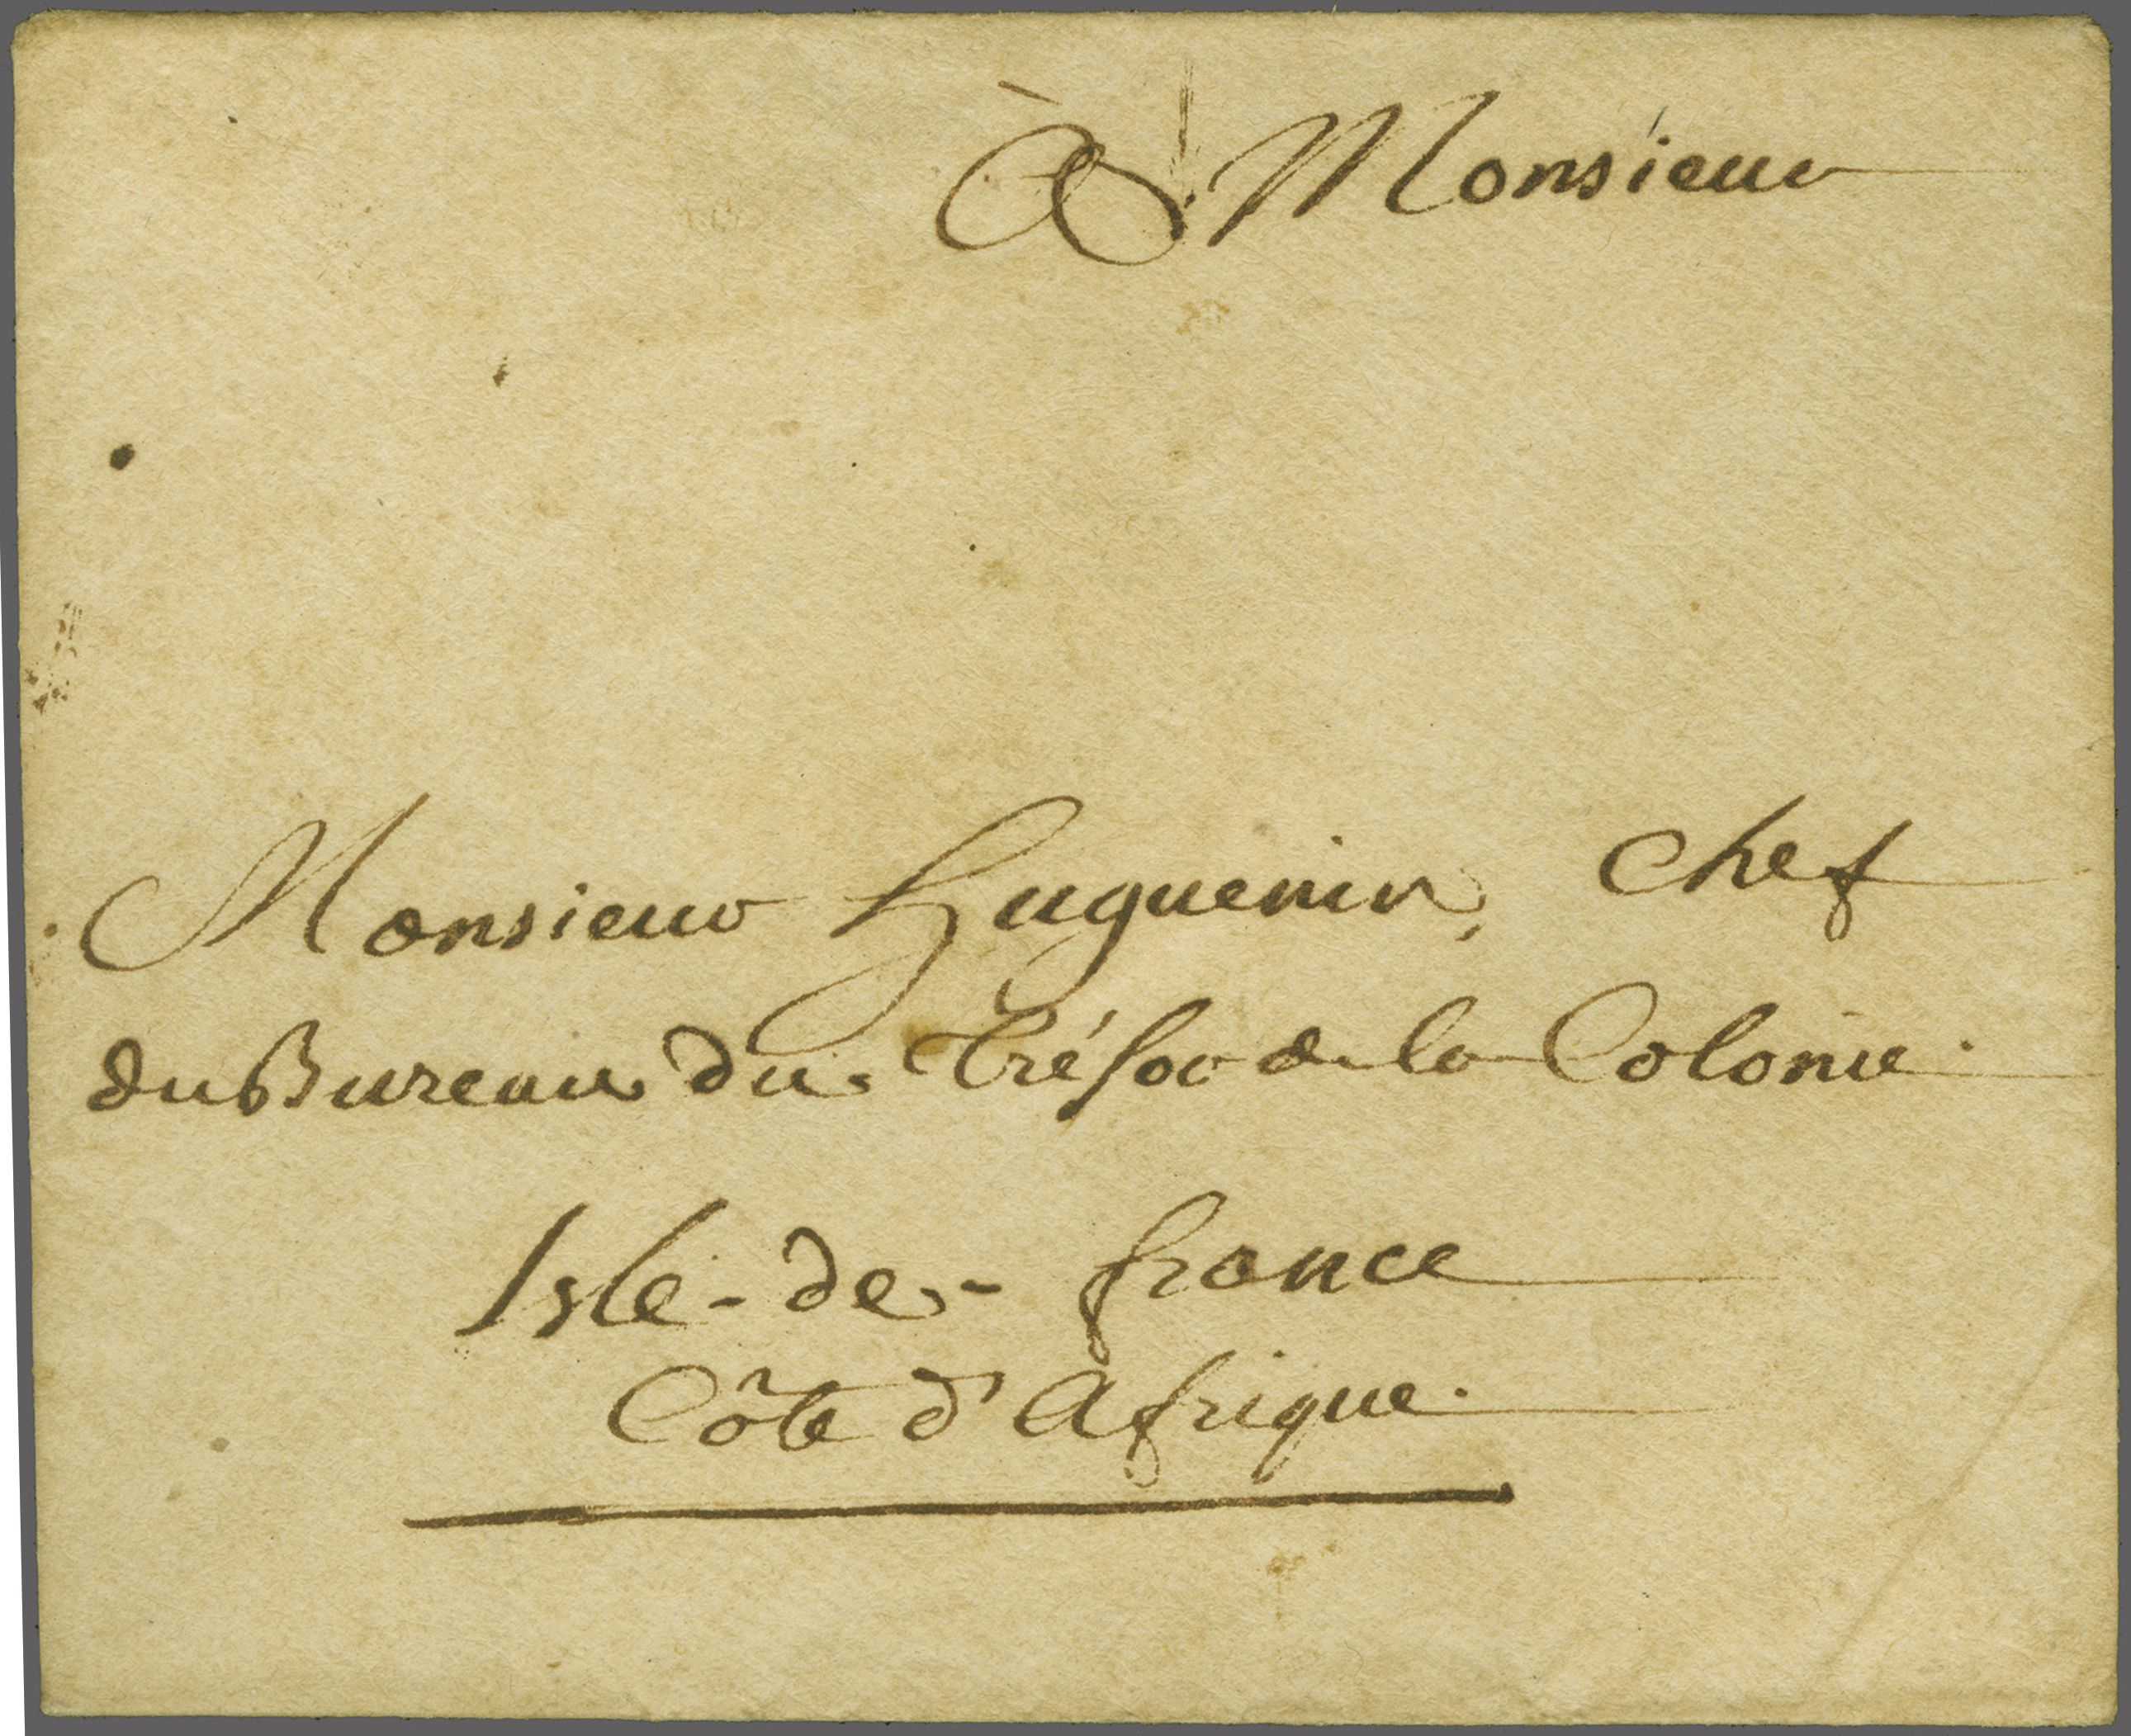 À Monsieur
Monsieur Huguenin, chef
du Bureau du Trésor de la Colonie.
Isle-de-france
Côte d'Afrique.